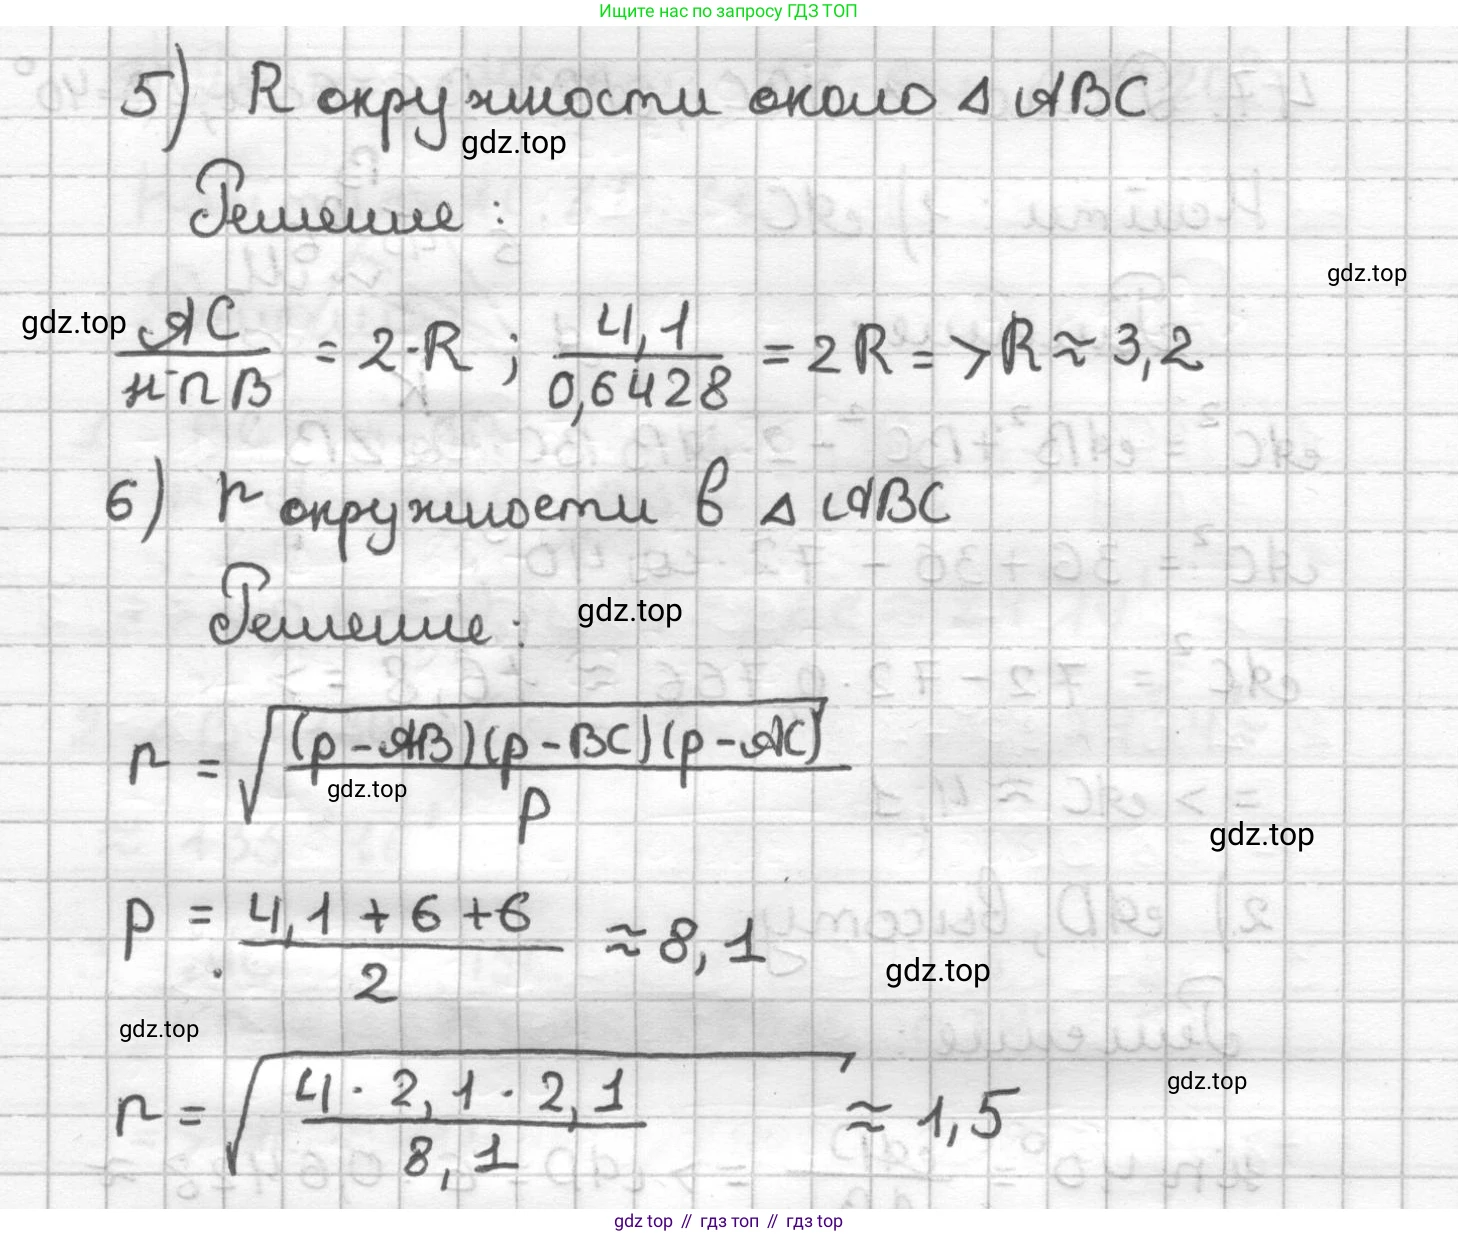 Ищите нас по запросу ГДЗ ТОП
5) R окружности около Δ ABC
gdz.top
Решение:
gdz.top
gdz.top
AC / sin B = 2·R; 4,1 / 0,6428 = 2R => R ≈ 3,2
6) r окружности в Δ ABC
Решение:
gdz.top
r = √((p-AB)(p-BC)(p-AC) / p)
gdz.top
gdz.top
p = (4,1+6+6) / 2 ≈ 8,1
gdz.top
gdz.top
gdz.top
r = √(4·2,1·2,1 / 8,1) ≈ 1,5
gdz top // гдз топ // гдз top